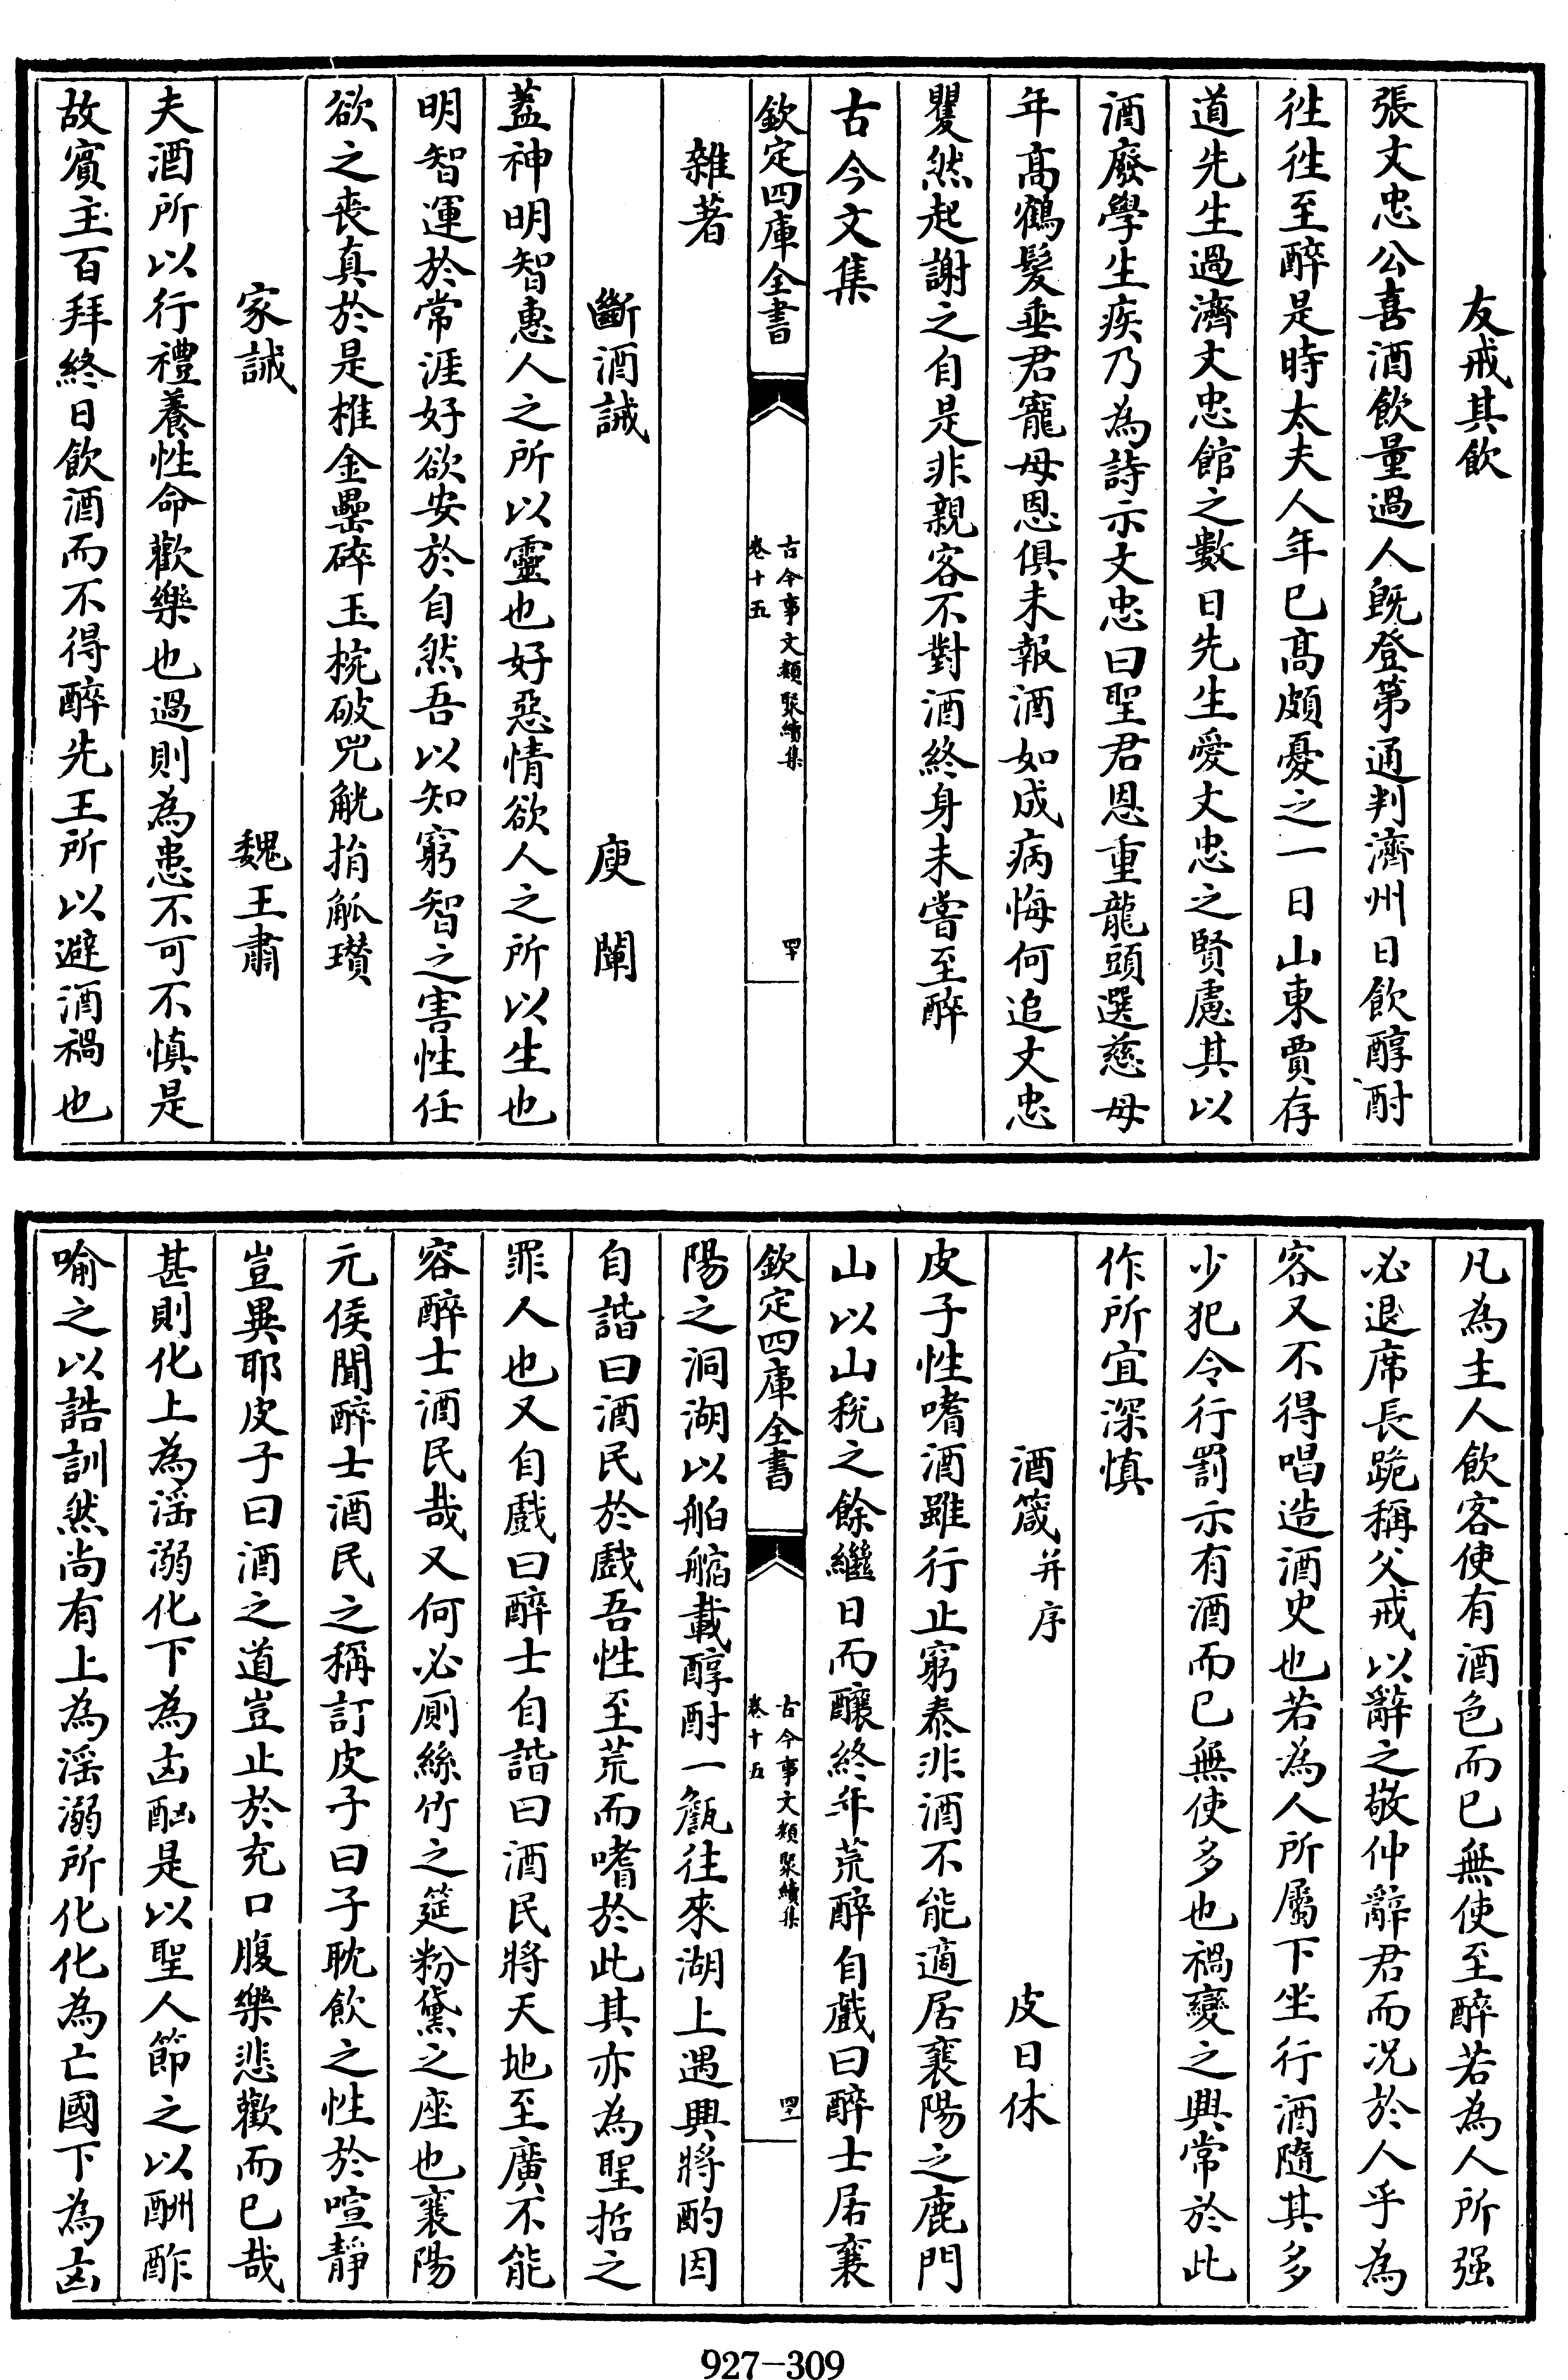 友戒其飲
張文忠公喜酒飲量過人既登第通判濟州日飲醇酎
徃徃至醉是時太夫人年已髙頗憂之一日山東賈存
道先生過濟文忠館之數日先生愛文忠之賢慮其以
酒廢學生疾乃為詩示文忠曰聖君恩重龍頭選慈母
年髙鶴髮垂君寵母恩俱未報酒如成病悔何追文忠
矍然起謝之自是非親客不對酒終身未嘗至醉
古今文集
欽定四庫全書
古今事文類聚續集
卷十五
四十
雜著
斷酒誡 庾闡
蓋神明智惠人之所以靈也好惡情欲人之所以生也
明智運於常涯好欲安於自然吾以知窮智之害性任
欲之喪真於是椎金罍碎玉椀破兕觥捐觚瓚
家誡 魏王肅
夫酒所以行禮養性命歡樂也過則為患不可不慎是
故賓主百拜終日飲酒而不得醉先王所以避酒禍也
凡為主人飲客使有酒色而已無使至醉若為人所强
必退席長跪稱父戒以辭之敬仲辭君而况於人乎為
客又不得唱造酒史也若為人所屬下坐行酒隨其多
少犯令行罰示有酒而已無使多也禍變之興常於此
作所宜深慎
酒箴并序 皮日休
皮子性嗜酒雖行止窮泰非酒不能適居襄陽之鹿門
山以山稅之餘繼日而釀終年荒醉自戲曰醉士居襄
欽定四庫全書
古今事文類聚續集
卷十五
陽之洞湖以舶艒載醇酎一甔往來湖上遇興將酌因
自諧曰酒民於戲吾性至荒而嗜於此其亦為聖哲之
罪人也又自戲曰醉士自諧曰酒民將天地至廣不能
容醉士酒民哉又何必厠絲竹之筵粉黛之座也襄陽
元侯聞醉士酒民之稱訂皮子曰子耽飲之性於喧靜
豈異耶皮子曰酒之道豈止於充口腹樂悲歡而已哉
甚則化上為淫溺化下為凶酗是以聖人節之以酬酢
喻之以誥訓然尚有上為淫溺所化化為亡國下為凶
927-309